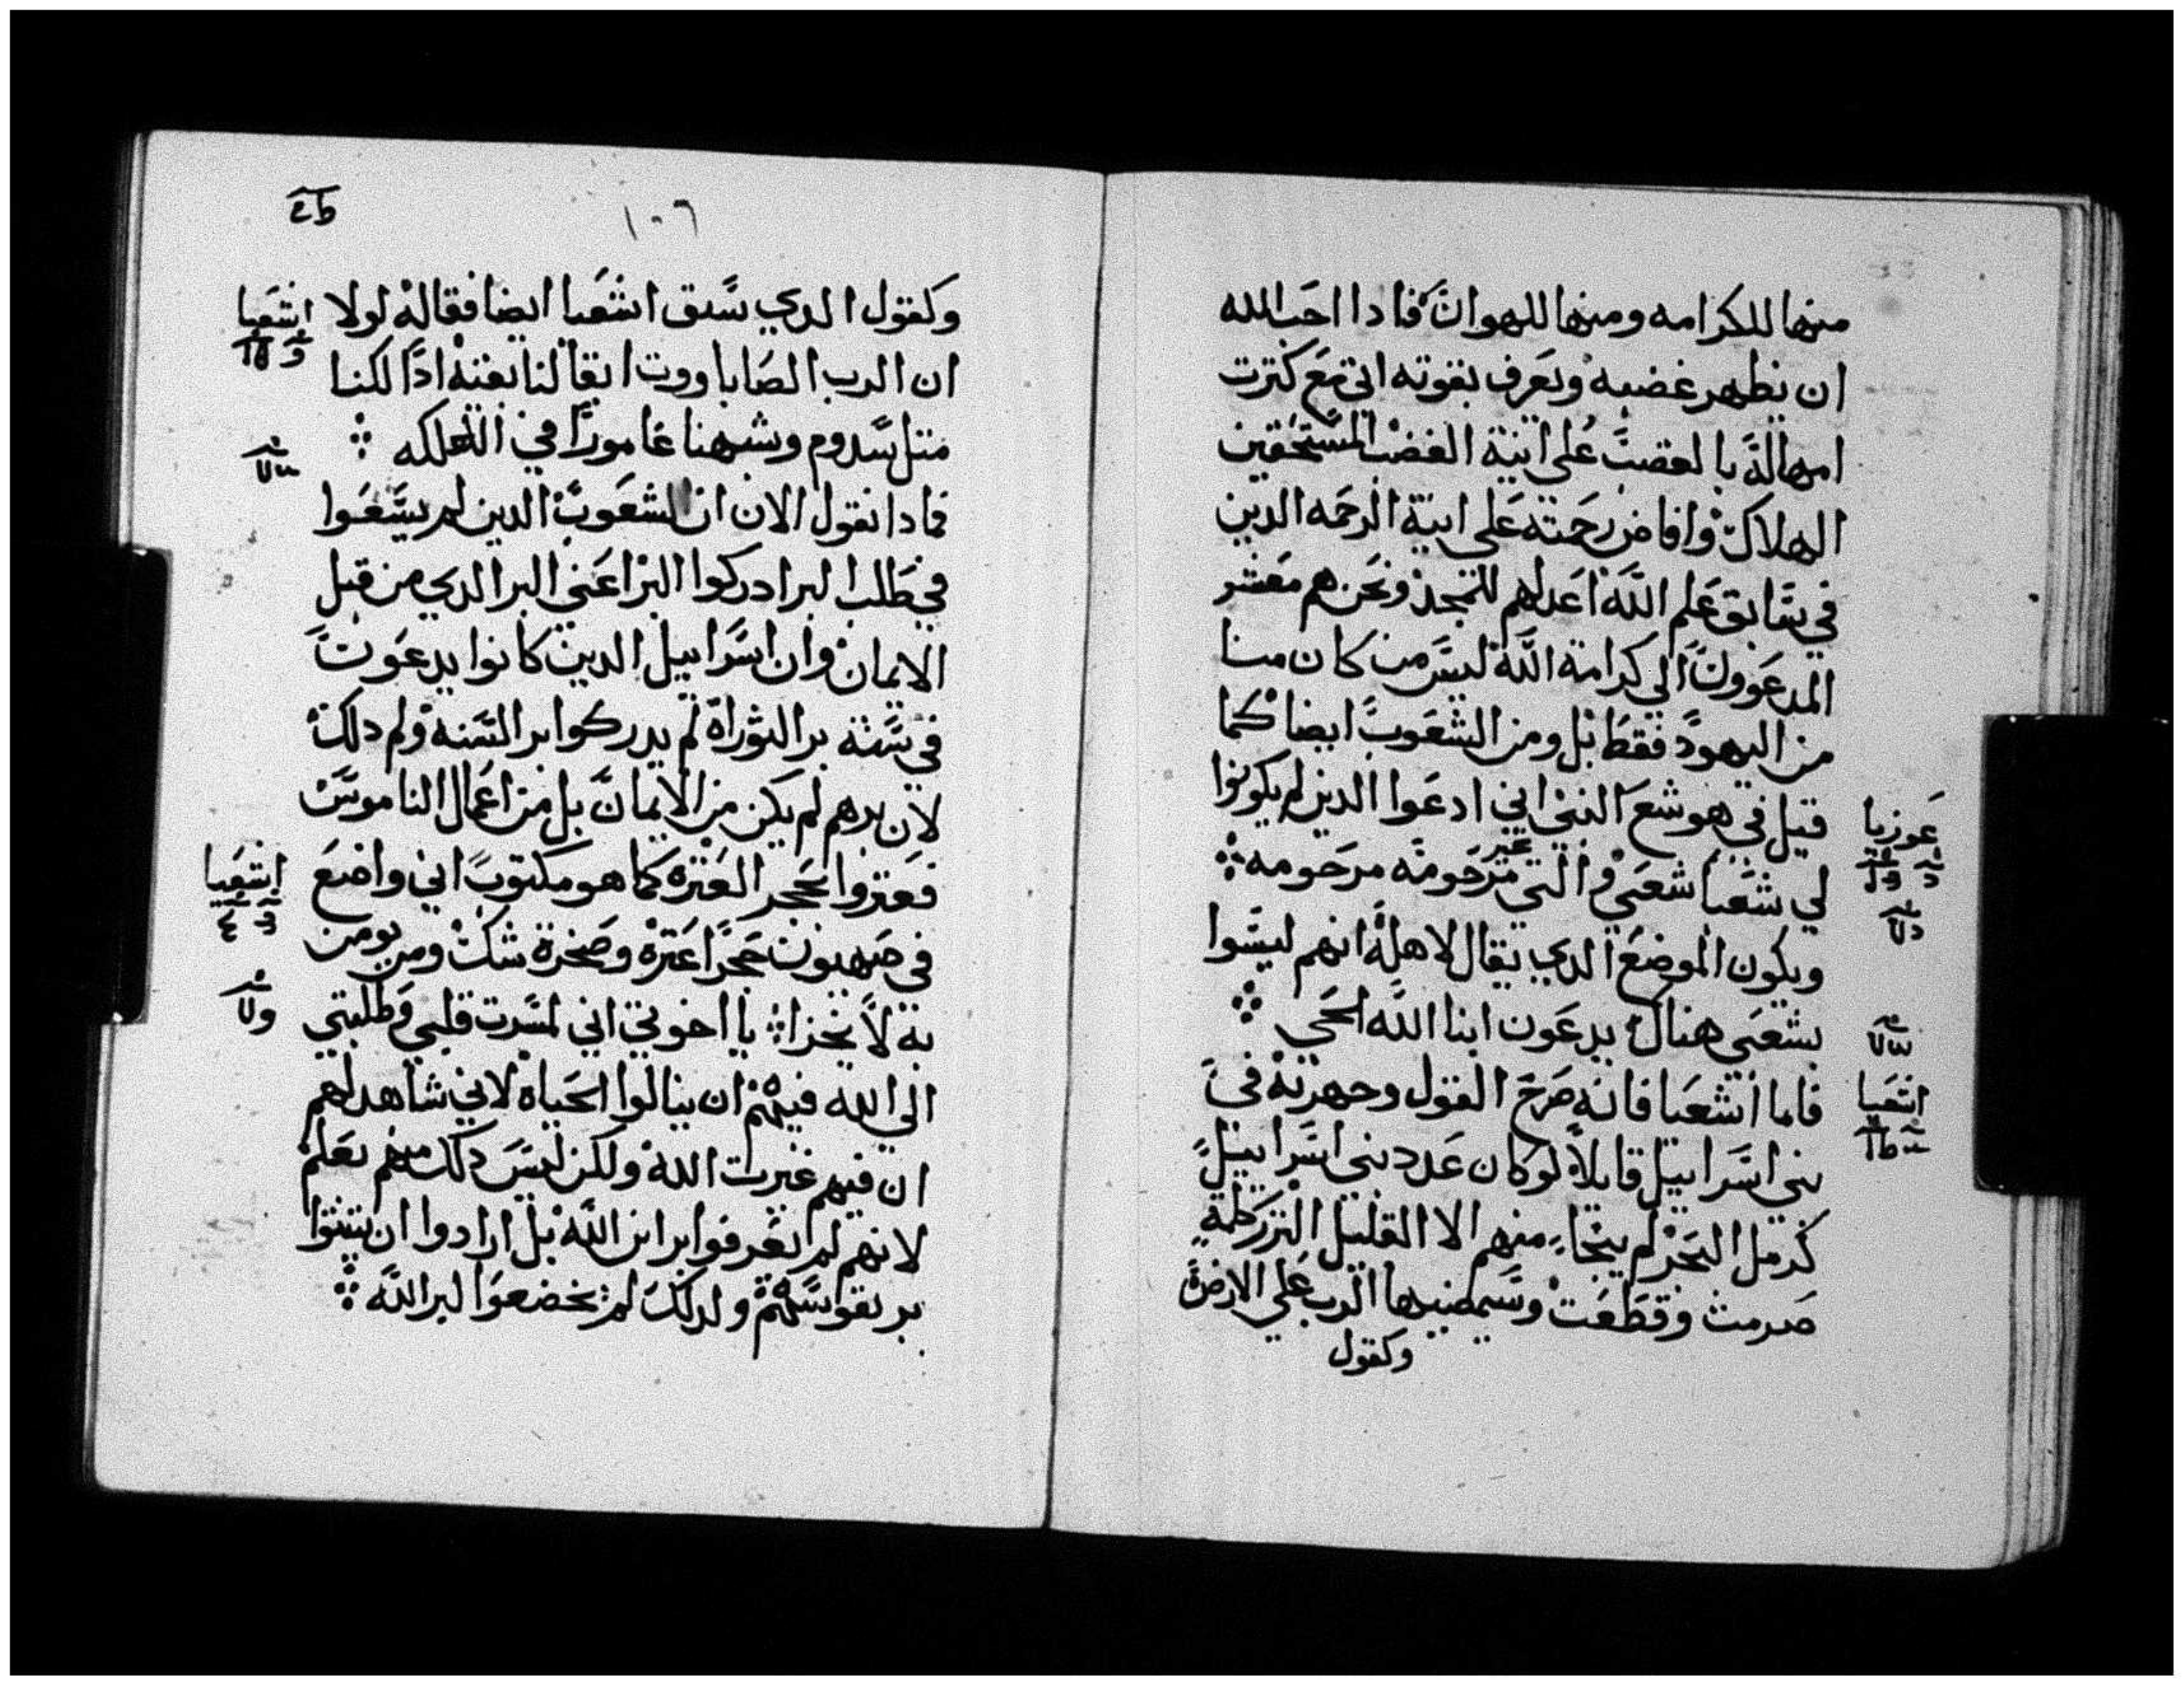 منها للكرامه ومنها للهوان فادا احب الله
ان يظهر غضبه ويعرف بقوته اتى مع كترت
امهاله بالغضب على انية الغضب المستحقين
الهلاك وافاض رحمته على انية الرحمه الدين
في سابق علم الله اعدلهم للتمجد ونحن هم معشر
المدعوون الى كرامة الله ليس من كان منا
من اليهود فقط بل ومن الشعوب ايضا كما
قيل في هوشع النبي اني ادعوا الدين لم يكونوا
لي شعبا شعبي والتي غير مرحومه مرحومه
ويكون الموضع الدي يقال لاهله انهم ليسوا
بشعبي هنالك يدعون ابنا الله الحي
فاما اشعيا فانه صرح القول وجهر به في
بني اسراييل قايلا لو كان عدد بني اسراييل
كرمل البحر لم ينجاء منهم الا القليل النزر كلمة
صرمت وقطعت وسيمضيها الرب على الارض
وكقول
عوزيا
اشعيا
١٠٦
وكقول الدي سبق اشعيا ايضا فقاله لولا
ان الرب الصاباووت ابقا لنا بقيه ادا لكنا
متل سدوم وشبهنا عامورا في الهلكه
فمادا نقول الان ان الشعوب الدين لم يسعوا
في طلب البر ادركوا البر اعني البر الدي من قبل
الايمان وان اسراييل الدين كانوا يدعون
في سنة بر التوراة لم يدركوا بر السنه ولم دلك
لان برهم لم يكن من الايمان بل من اعمال الناموس
فعتروا بحجر العتره كما هو مكتوب اني واضع
في صهيون حجرا عتره وصخرة شك ومن يومن
به لا يخزا يا اخوتي اني لمسرت قلبي وطلبتي
الي الله فيهم ان ينالوا الحياة لاني شاهد لهم
ان فيهم غيرت الله ولكن ليس دلك منهم بعلم
لانهم لم يعرفوا بر ابن الله بل ارادوا ان يثبتوا
بر نفوسهم ولدلك لم يخضعوا لبر الله
اشعيا
اشعيا